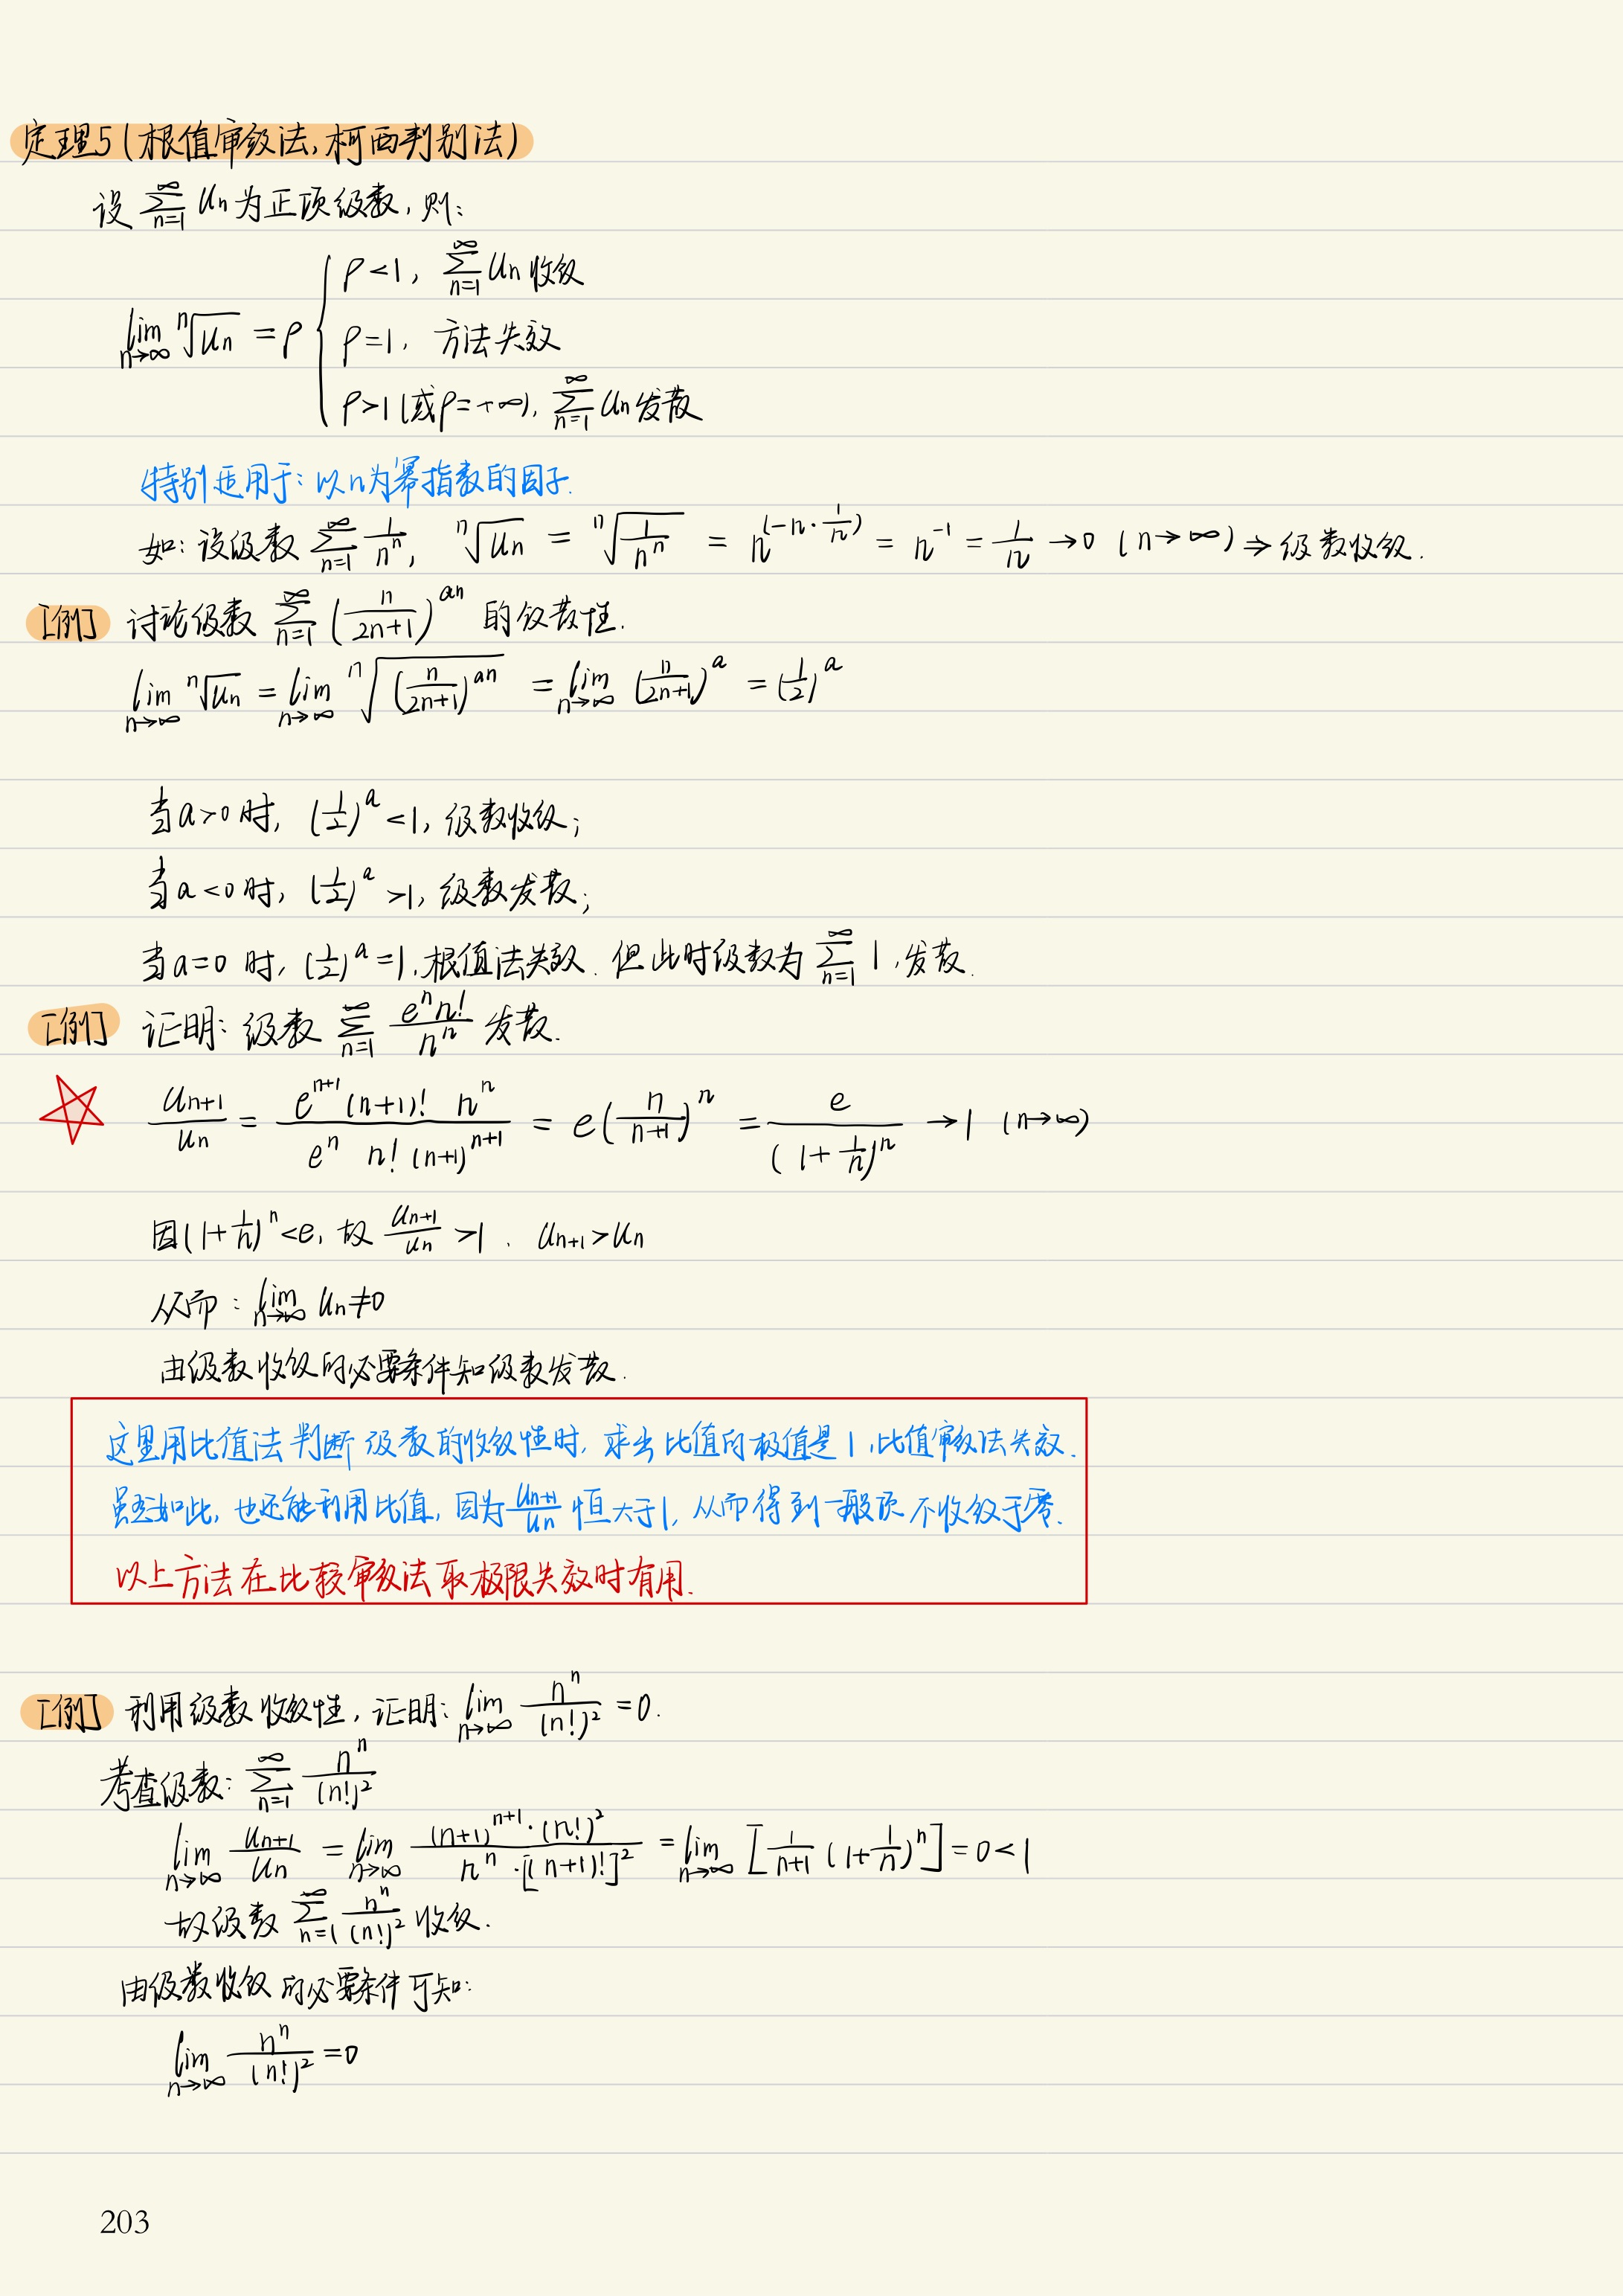 定理5(根值审敛法,柯西判别法)
设 $\sum_{n=1}^{\infty} u_n$ 为正项级数,则:
$\lim_{n\to\infty} \sqrt[n]{u_n} = \rho \begin{cases} \rho<1, \sum_{n=1}^{\infty} u_n 收敛 \\ \rho=1, 方法失效 \\ \rho>1(或\rho=+\infty), \sum_{n=1}^{\infty} u_n 发散 \end{cases}$
特别适用于:以n为幂指数的因子.
如:设级数 $\sum_{n=1}^{\infty} \frac{1}{n^n}$, $\sqrt[n]{u_n} = \sqrt[n]{\frac{1}{n^n}} = n^{(-n\cdot\frac{1}{n})} = n^{-1} = \frac{1}{n} \to 0 \ (n\to\infty) \Rightarrow$ 级数收敛.
[例] 讨论级数 $\sum_{n=1}^{\infty} (\frac{n}{2n+1})^{an}$ 的敛散性.
$\lim_{n\to\infty} \sqrt[n]{u_n} = \lim_{n\to\infty} \sqrt[n]{(\frac{n}{2n+1})^{an}} = \lim_{n\to\infty} (\frac{n}{2n+1})^a = (\frac{1}{2})^a$
当a>0时, $(\frac{1}{2})^a<1$, 级数收敛;
当a<0时, $(\frac{1}{2})^a>1$, 级数发散;
当a=0时, $(\frac{1}{2})^a=1$, 根值法失效. 但此时级数为 $\sum_{n=1}^{\infty} 1$, 发散.
[例] 证明:级数 $\sum_{n=1}^{\infty} \frac{e^n n!}{n^n}$ 发散.
$\frac{u_{n+1}}{u_n} = \frac{e^{n+1}(n+1)! \ n^n}{e^n \ n! \ (n+1)^{n+1}} = e(\frac{n}{n+1})^n = \frac{e}{(1+\frac{1}{n})^n} \to 1 \ (n\to\infty)$
因 $(1+\frac{1}{n})^n<e$, 故 $\frac{u_{n+1}}{u_n}>1$. $u_{n+1}>u_n$
从而: $\lim_{n\to\infty} u_n \neq 0$
由级数收敛的必要条件知级数发散.
这里用比值法判断级数的收敛性时, 求出比值的极值是1, 比值审敛法失效.
虽然如此, 也还能利用比值, 因为 $\frac{u_{n+1}}{u_n}$ 恒大于1, 从而得到一般项不收敛于零.
以上方法在比较审敛法取极限失效时有用.
[例] 利用级数收敛性, 证明: $\lim_{n\to\infty} \frac{n^n}{(n!)^2} = 0$.
考查级数: $\sum_{n=1}^{\infty} \frac{n^n}{(n!)^2}$
$\lim_{n\to\infty} \frac{u_{n+1}}{u_n} = \lim_{n\to\infty} \frac{(n+1)^{n+1}\cdot(n!)^2}{n^n\cdot[(n+1)!]^2} = \lim_{n\to\infty} [\frac{1}{n+1}(1+\frac{1}{n})^n] = 0<1$
故级数 $\sum_{n=1}^{\infty} \frac{n^n}{(n!)^2}$ 收敛.
由级数收敛的必要条件可知:
$\lim_{n\to\infty} \frac{n^n}{(n!)^2} = 0$
203